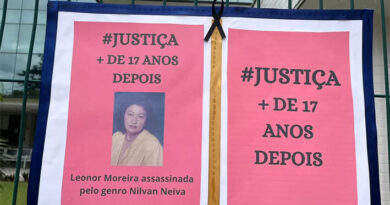 #JUSTIÇA
+ DE 17 ANOS
DEPOIS
Leonor Moreira assassinada
pelo genro Nilvan Neiva
#JUSTIÇA
+ DE 17
ANOS
DEPOIS